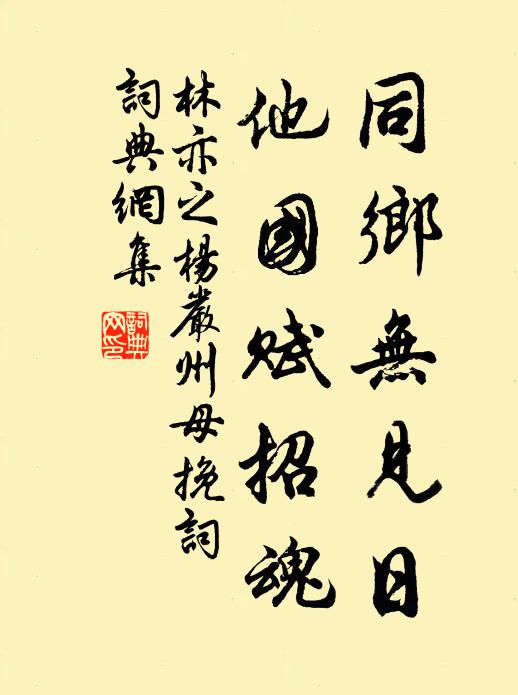 同鄉無見日
他國賦招魂
林亦之楊嚴州母挽詞
詞典網集
詞典網印